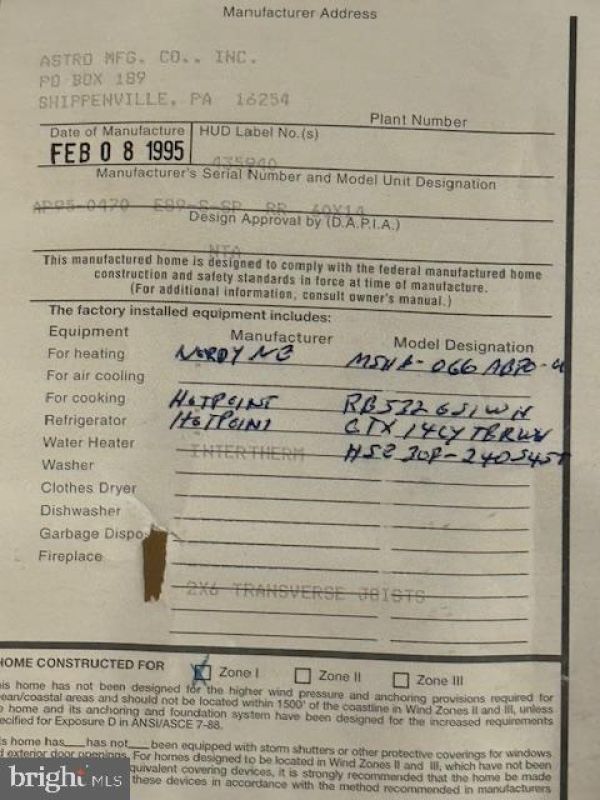 Manufacturer Address
ASTRO MFG. CO., INC.
PO BOX 189
SHIPPENVILLE, PA 16254
Plant Number
Date of Manufacture HUD Label No.(s)
FEB 08 1995 435940
Manufacturer's Serial Number and Model Unit Designation
AP95-0470 RR 60X14
Design Approval by (D.A.P.I.A.)
NTA
This manufactured home is designed to comply with the federal manufactured home
construction and safety standards in force at time of manufacture.
(For additional information, consult owner's manual.)
The factory installed equipment includes:
Equipment Manufacturer Model Designation
For heating
For air cooling
For cooking HOTPOINT
Refrigerator HOTPOINT
Water Heater INTERTHERM
Washer
Clothes Dryer
Dishwasher
Garbage Dispo
Fireplace
2X6 TRANSVERSE JOISTS
HOME CONSTRUCTED FOR Zone I Zone II Zone III
is home has not been designed for the higher wind pressure and anchoring provisions required for
ean/coastal areas and should not be located within 1500' of the coastline in Wind Zones II and III, unless
e home and its anchoring and foundation system have been designed for the increased requirements
ecified for Exposure D in ANSI/ASCE 7-88.
s home has___has not___been equipped with storm shutters or other protective coverings for windows
d exterior door openings. For homes designed to be located in Wind Zones II and III, which have not been
quivalent covering devices, it is strongly recommended that the home be made
these devices in accordance with the method recommended in manufacturers
bright MLS